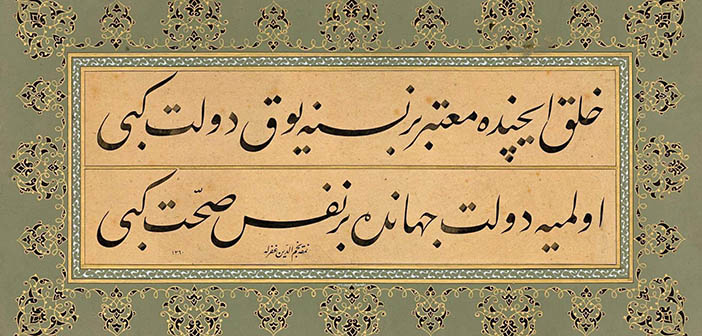 خلق ایچنده معتبر بر نسنه یوق دولت كبی
اولمیه دولت جهانده بر نفس صحّت كبی
نمقه نجم الدین غفرله
١٣٦٠